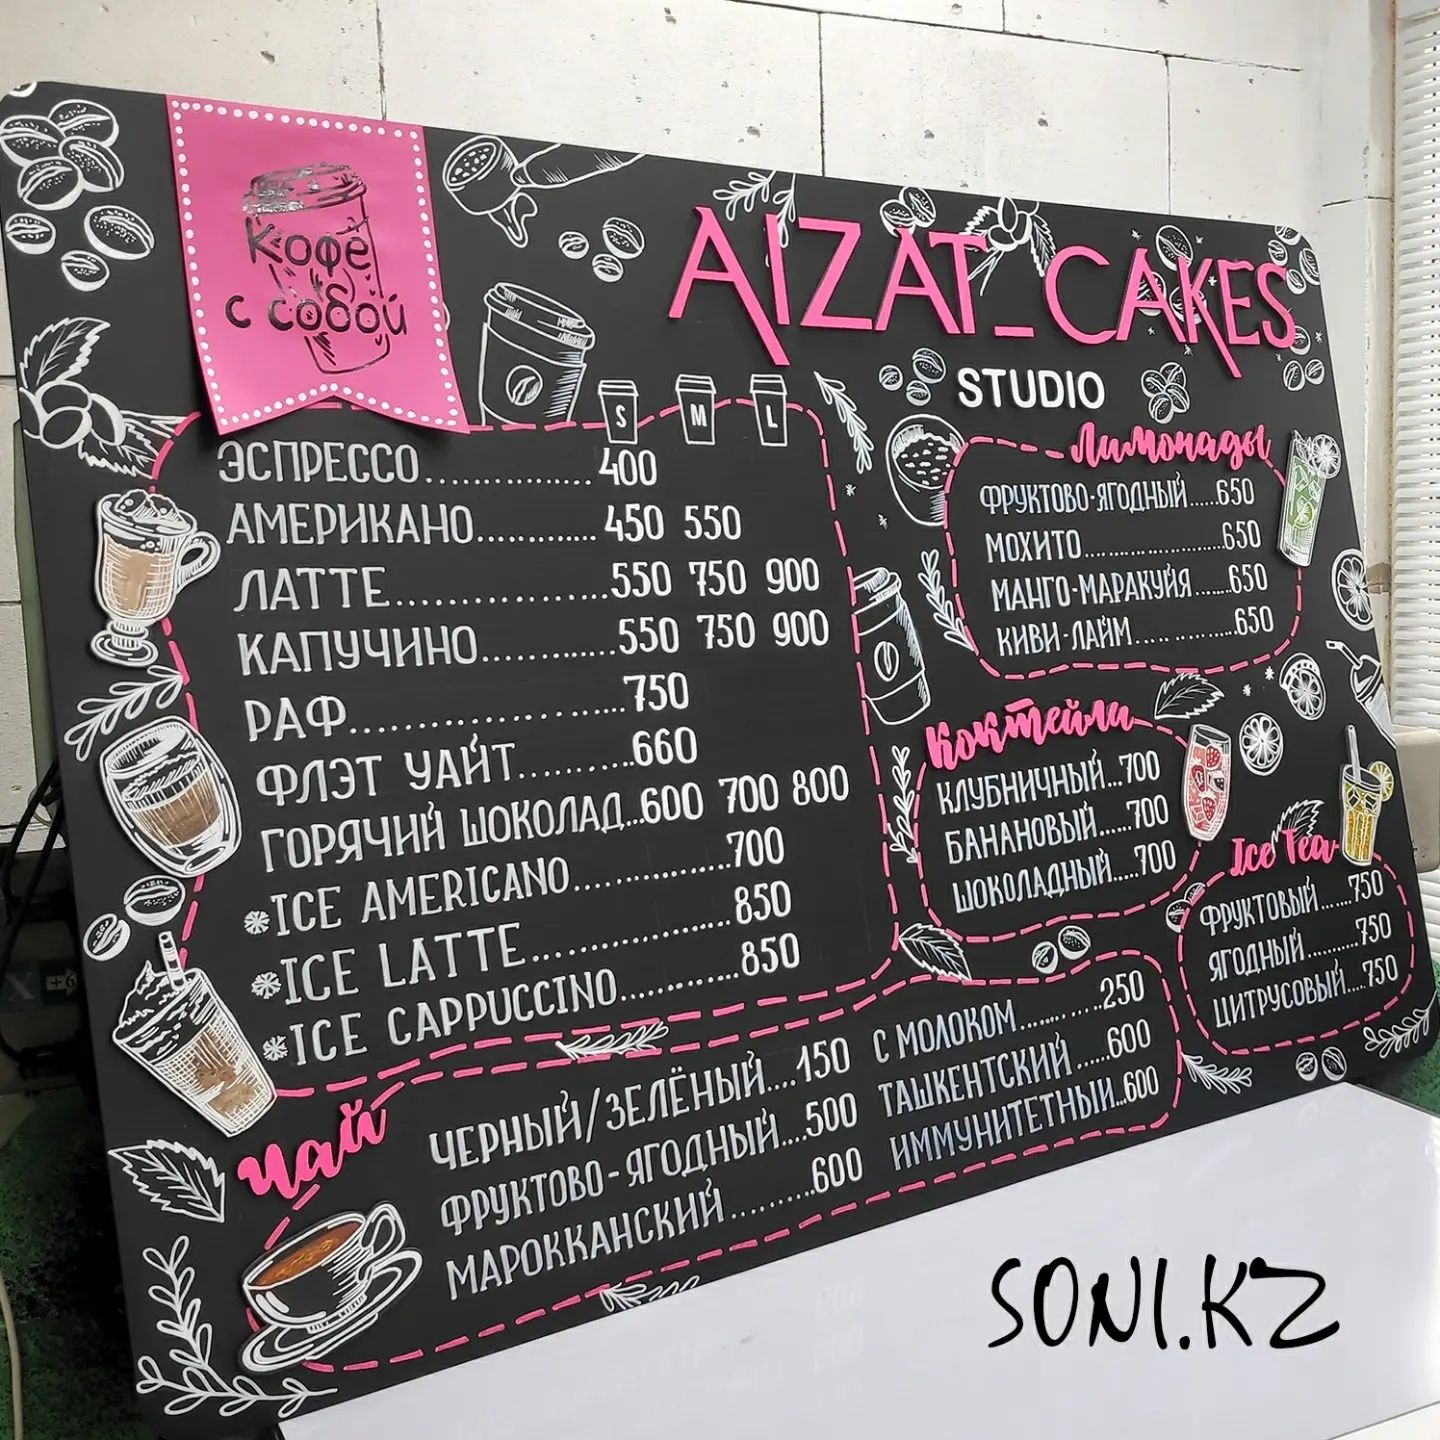 Кофе
с собой
AIZAT_CAKES
STUDIO
S M L
ЭСПРЕССО................400
АМЕРИКАНО.............450 550
ЛАТТЕ......................550 750 900
КАПУЧИНО..............550 750 900
РАФ..........................750
ФЛЭТ УАЙТ..........660
ГОРЯЧИЙ ШОКОЛАД..600 700 800
ICE AMERICANO...............700
ICE LATTE...................850
ICE CAPPUCCINO...........850
Лимонады
ФРУКТОВО-ЯГОДНЫЙ.....650
МОХИТО...................650
МАНГО-МАРАКУЙЯ......650
КИВИ-ЛАЙМ..............650
Коктейли
КЛУБНИЧНЫЙ...700
БАНАНОВЫЙ......700
ШОКОЛАДНЫЙ.....700
Ice Tea
ФРУКТОВЫЙ.....750
ЯГОДНЫЙ.........750
ЦИТРУСОВЫЙ....750
Чай
ЧЕРНЫЙ/ЗЕЛЁНЫЙ....150
ФРУКТОВО-ЯГОДНЫЙ....500
МАРОККАНСКИЙ.........600
С МОЛОКОМ..........250
ТАШКЕНТСКИЙ......600
ИММУНИТЕТНЫЙ...600
SONI.KZ